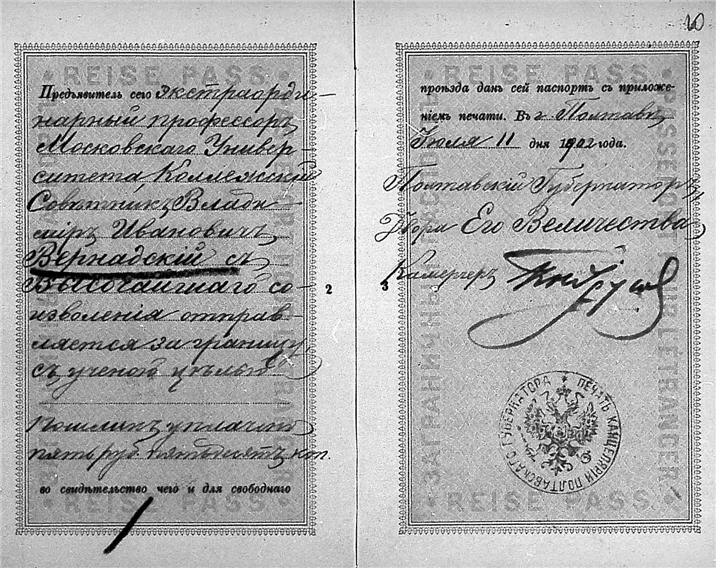 10
REISE PASS
Предъявитель сего экстраорди-
нарный профессоръ
Московскаго Универ-
ситета, Коллежскій
Совѣтникъ Влади-
міръ Ивановичъ
Вернадскій съ
Высочайшаго со-
изволенія отправ-
ляется за границу
съ ученой цѣлью
Пошлинъ уплачено
пять руб. пятьдесятъ коп.
во свидѣтельство чего и для свободнаго
REISE PASS
2
REISE PASS
проѣзда данъ сей паспортъ съ приложе-
ніемъ печати. Въ г. Полтавѣ
Іюля 11 дня 1902 года.
Полтавскій Губернаторъ,
Двора Его Величества
Камергеръ
3
ЗАГРАНИЧНЫЙ ПАСПОРТЪ
PASSEPORT POUR L'ÉTRANGER
ПЕЧАТЬ КАНЦЕЛЯРІИ ПОЛТАВСКАГО ГУБЕРНАТОРА
REISE PASS